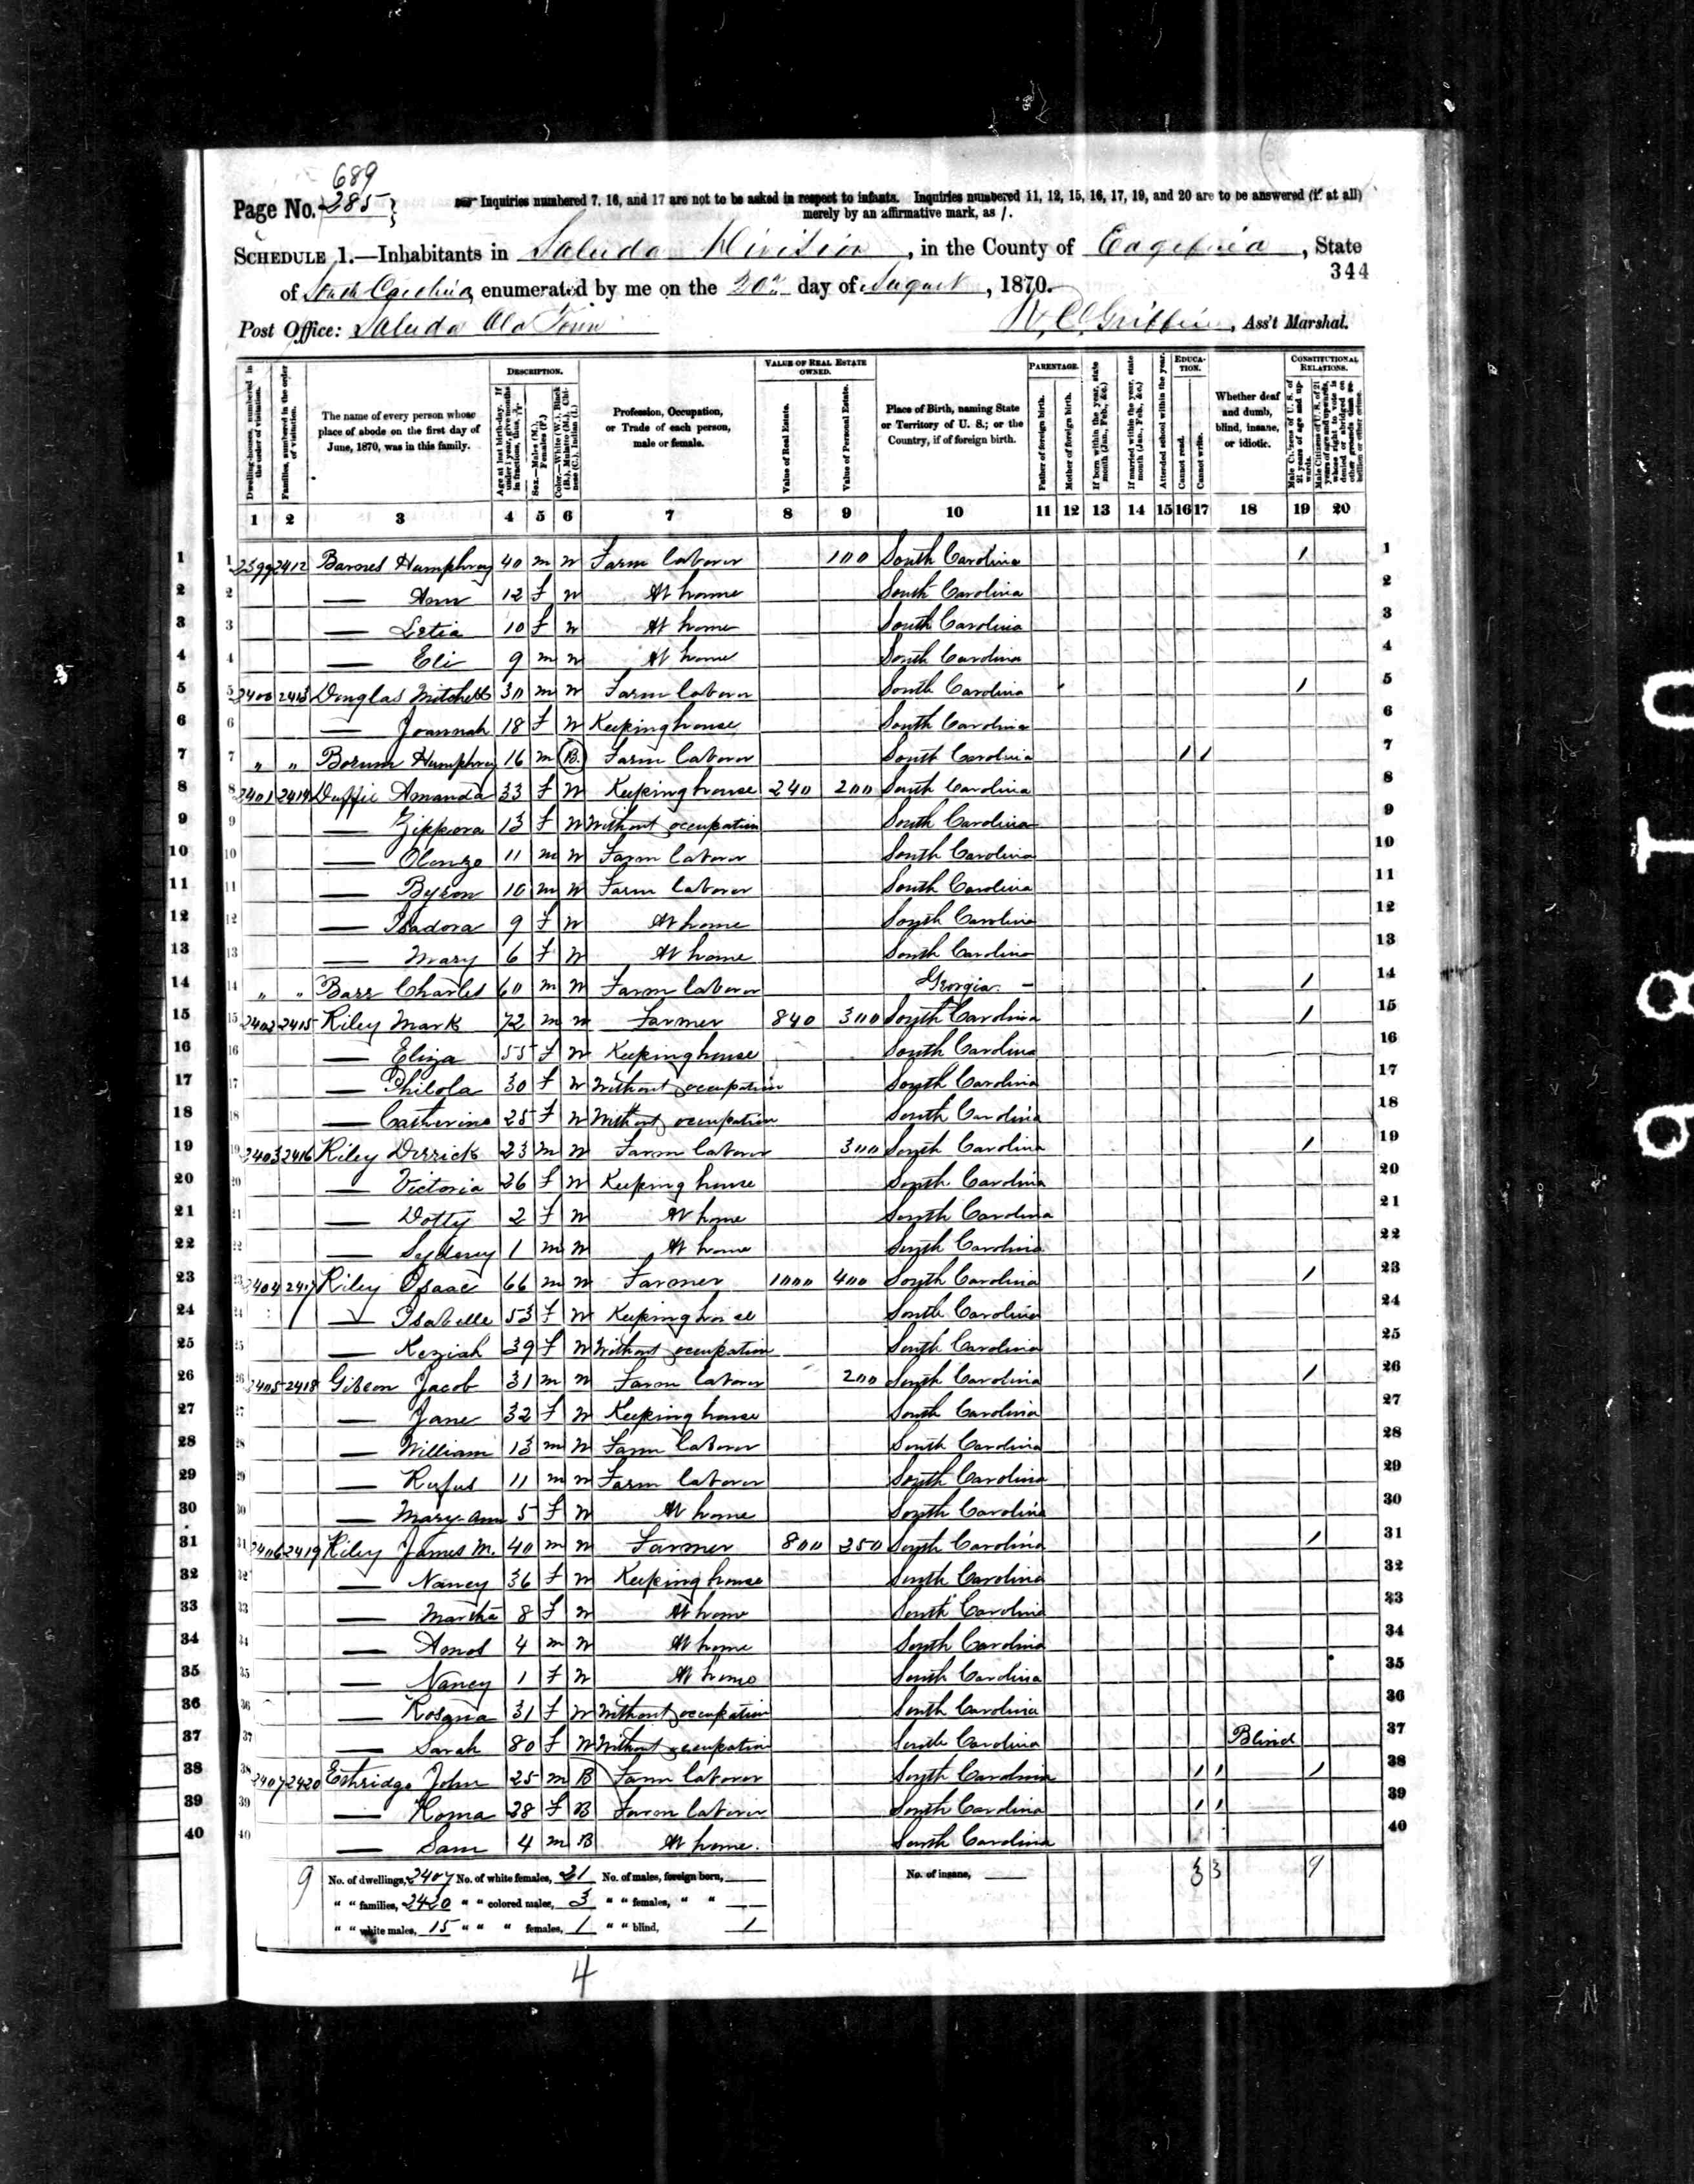 689
Page No. 285
Inquiries numbered 7, 16, and 17 are not to be asked in respect to infants. Inquiries numbered 11, 12, 15, 16, 17, 19, and 20 are to be answered (if at all)
merely by an affirmative mark, as /.
SCHEDULE 1.—Inhabitants in Saluda Division, in the County of Edgefield, State
344
of South Carolina, enumerated by me on the 20th day of August, 1870.
Post Office: Saluda Old Town W. C. Griffin, Ass't Marshal.
Dwelling-houses, numbered in the order of visitation.
Families, numbered in the order of visitation.
The name of every person whose place of abode on the first day of June, 1870, was in this family.
DESCRIPTION.
Age at last birth-day. If under 1 year, give months in fractions, thus, 3/12.
Sex.—Males (M.), Females (F.)
Color.—White (W.), Black (B.), Mulatto (M.), Chinese (C.), Indian (I.)
Profession, Occupation, or Trade of each person, male or female.
VALUE OF REAL ESTATE OWNED.
Value of Real Estate.
Value of Personal Estate.
Place of Birth, naming State or Territory of U. S.; or the Country, if of foreign birth.
PARENTAGE.
Father of foreign birth.
Mother of foreign birth.
If born within the year, state month (Jan., Feb., &c.)
If married within the year, state month (Jan., Feb., &c.)
Attended school within the year.
EDUCATION.
Cannot read.
Cannot write.
Whether deaf and dumb, blind, insane, or idiotic.
CONSTITUTIONAL RELATIONS.
Male Citizens of U. S. of 21 years of age and upwards.
Male Citizens of U. S. of 21 years of age and upwards, whose right to vote is denied or abridged on other grounds than rebellion or other crime.
1 2 3 4 5 6 7 8 9 10 11 12 13 14 15 16 17 18 19 20
1 1 2399 2412 Barnes Humphrey 40 m W Farm laborer 100 South Carolina / 1
2 2 — Ann 12 f W At home South Carolina 2
3 3 — Letia 10 f W At home South Carolina 3
4 4 — Eli 9 m W At home South Carolina 4
5 5 2400 2413 Douglas Mitchell 30 m W Farm laborer South Carolina / 5
6 6 — Joannah 18 f W Keeping house South Carolina 6
7 7 " " Borum Humphrey 16 m B. Farm laborer South Carolina / / 7
8 8 2401 2414 Duffie Amanda 33 f W Keeping house 240 200 South Carolina 8
9 9 — Zippora 13 f W Without occupation South Carolina 9
10 10 — Olonzo 11 m W Farm laborer South Carolina 10
11 11 — Byron 10 m W Farm laborer South Carolina 11
12 12 — Isadora 9 f W At home South Carolina 12
13 13 — Mary 6 f W At home South Carolina 13
14 14 " " Barr Charles 60 m W Farm laborer Georgia. – / 14
15 15 2402 2415 Riley Mark 72 m W Farmer 840 300 South Carolina / 15
16 16 — Eliza 55 f W Keeping house South Carolina 16
17 17 — Philola 30 f W Without occupation South Carolina 17
18 18 — Catherine 25 f W Without occupation South Carolina 18
19 19 2403 2416 Riley Derrick 23 m W Farm laborer 300 South Carolina / 19
20 20 — Victoria 26 f W Keeping house South Carolina 20
21 21 — Dotty 2 f W At home South Carolina 21
22 22 — Sydney 1 m W At home South Carolina 22
23 23 2404 2417 Riley Isaac 66 m W Farmer 1000 400 South Carolina / 23
24 24 — Isabelle 53 f W Keeping house South Carolina 24
25 25 — Keziah 39 f W Without occupation South Carolina 25
26 26 2405 2418 Gibson Jacob 31 m W Farm laborer 200 South Carolina / 26
27 27 — Jane 32 f W Keeping house South Carolina 27
28 28 — William 13 m W Farm laborer South Carolina 28
29 29 — Rufus 11 m W Farm laborer South Carolina 29
30 30 — Mary Ann 5 f W At home South Carolina 30
31 31 2406 2419 Riley James M. 40 m W Farmer 800 250 South Carolina / 31
32 32 — Nancy 36 f W Keeping house South Carolina 32
33 33 — Martha 8 f W At home South Carolina 33
34 34 — Amos 4 m W At home South Carolina 34
35 35 — Nancy 1 f W At home South Carolina 35
36 36 — Rosana 31 f W Without occupation South Carolina 36
37 37 — Sarah 80 f W Without occupation South Carolina Blind 37
38 38 2407 2420 Ethridge John 25 m B Farm laborer South Carolina / / / 38
39 39 — Roma 28 f B Farm laborer South Carolina / / 39
40 40 — Sam 4 m B At home. South Carolina 40
9 No. of dwellings, 2407 No. of white females, 21 No. of males, foreign born, — No. of insane, — 3 3 9
" " families, 2420 " " colored males, 3 " " females, " " —
" " white males, 15 " " " females, 1 " " blind, 1
4
0 1 8 6